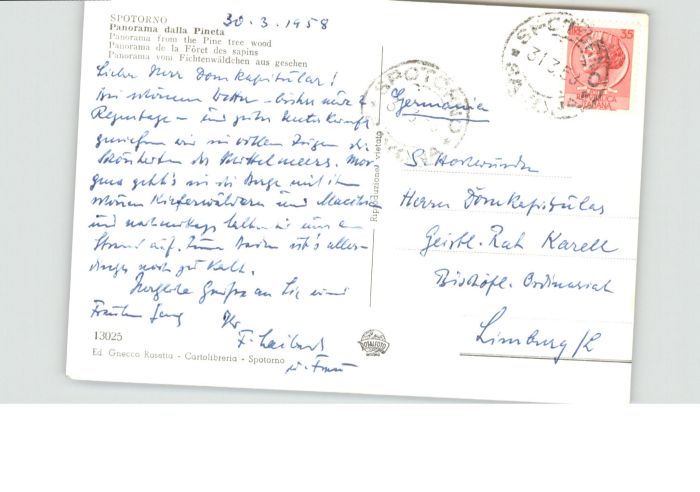 30.3.1958
SPOTORNO
Panorama dalla Pineta
Panorama from the Pine tree wood
Panorama de la Fôret des sapins
Panorama vom Fichtenwäldchen aus gesehen
Lieber Herr Domkapitular!
Bei schönem Wetter - bisher nur 2
Regentage - und guter Unterkunft
genießen wir in vollen Zügen die
Schönheiten des Mittelmeers. Mor-
gens geht's in die Berge mit ihren
schönen Kiefernwäldern und
und nachmittags halten wir uns am
Strand auf. Zum Baden ist's aller-
dings noch zu kalt.
Herzliche Grüße an Sie und
Fräulein
Ihr
F.
u. Frau
13025
Ed Gnecco Rosetta - Cartolibreria - Spotorno
Riproduzione vietata
SPOTORNO
SPOTORNO
31.3.58
35
ITALIANA
Germania
S. Hochwürden
Herrn Domkapitular
Geistl. Rat Karell
Bischöfl. Ordinariat
Limburg/L